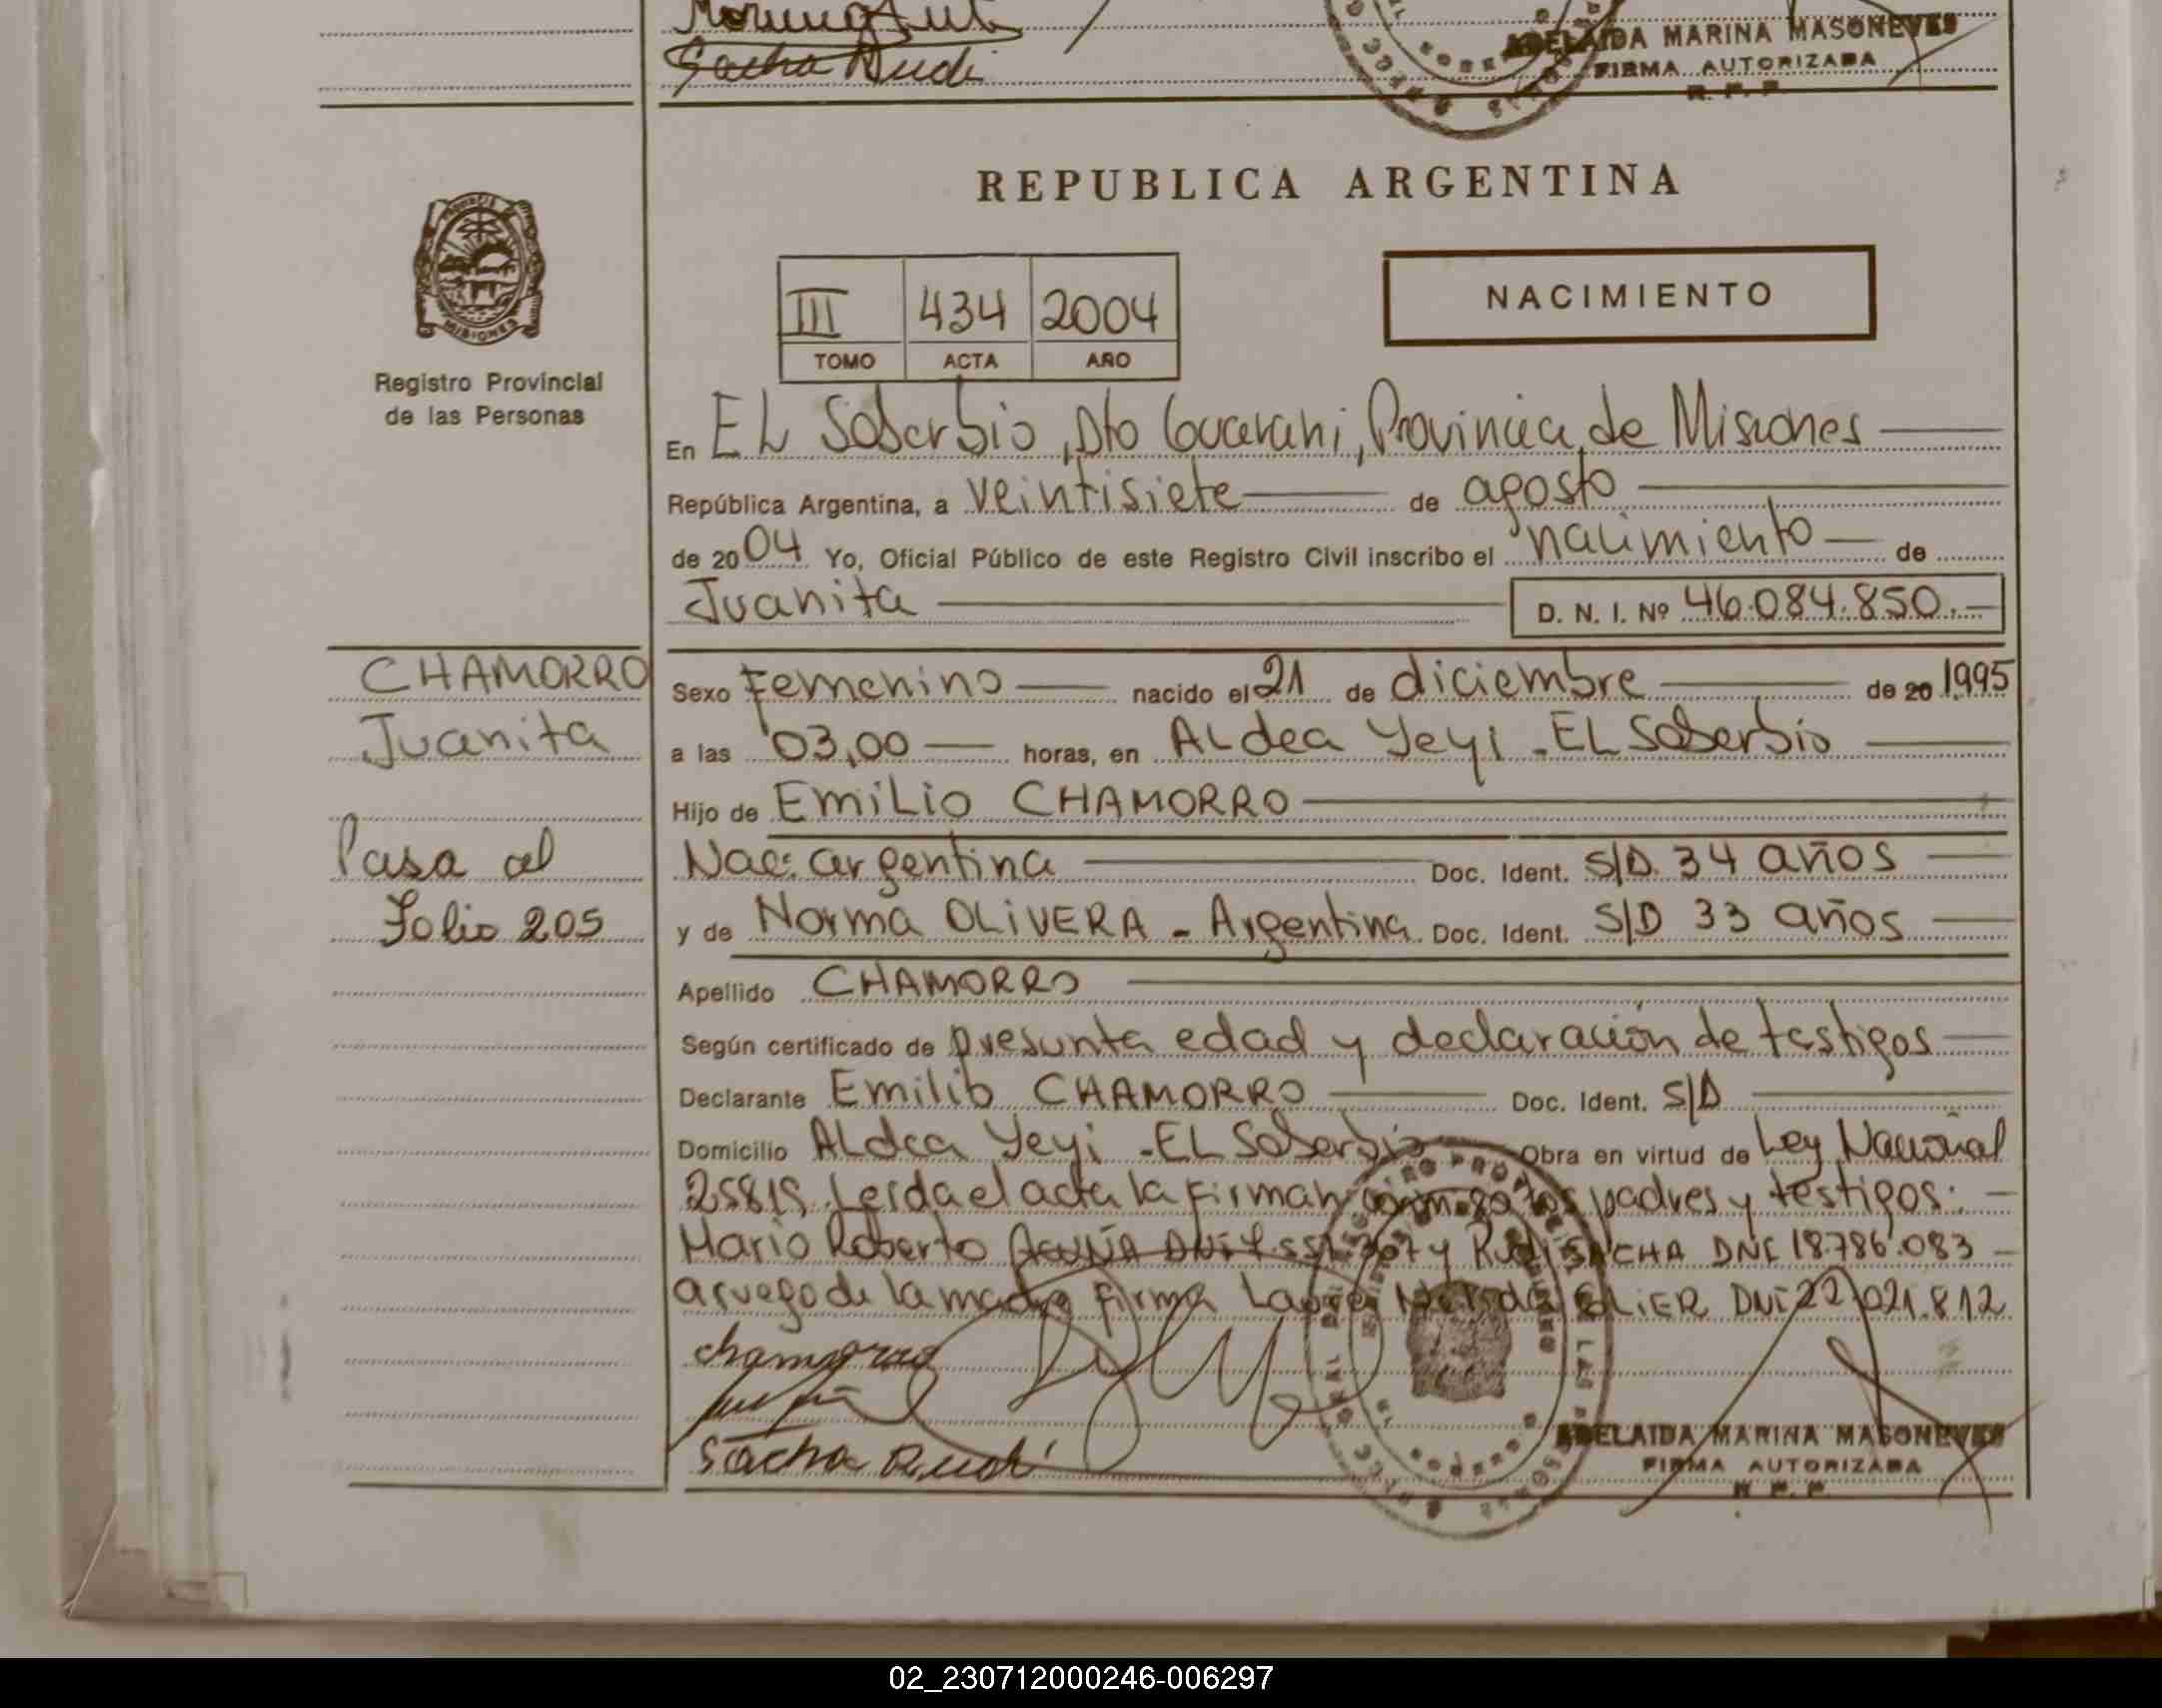 Sacha Rudi
ADELAIDA MARINA MASONEVES
FIRMA AUTORIZADA
R. P. P.
REPUBLICA ARGENTINA
MISIONES
Registro Provincial
de las Personas
III 434 2004
TOMO ACTA AÑO
NACIMIENTO
En EL Soberbio, Dto Guarani, Provincia de Misiones
República Argentina, a veintisiete de agosto
de 2004 Yo, Oficial Público de este Registro Civil inscribo el nacimiento de
Juanita D. N. I. Nº 46.084.850.-
CHAMORRO
Juanita
Pasa al
Folio 205
Sexo Femenino nacido el 21 de diciembre de 20 1995
a las 03,00 horas, en ALdea Yeyi - EL Soberbio
Hijo de EmiLio CHAMORRO
Nac: argentina Doc. Ident. S/D. 34 años
y de Norma OLiVERA - Argentina. Doc. Ident. S/D 33 años
Apellido CHAMORRO
Según certificado de presunta edad y declaración de testigos
Declarante Emilio CHAMORRO Doc. Ident. S/D
Domicilio ALdea Yeyi - EL Soberbio Obra en virtud de Ley Nacional
25819. Leida el acta la firman conmigo los padres y testigos:
Mario Roberto ACUÑA DNI y Rudi SACHA DNI 18.786.083
a ruego de la madre firma GOLIER DNI 22.021.812
chamorro
Sacha Rudi
ADELAIDA MARINA MASONEVES
FIRMA AUTORIZADA
R. P. P.
02_230712000246-006297